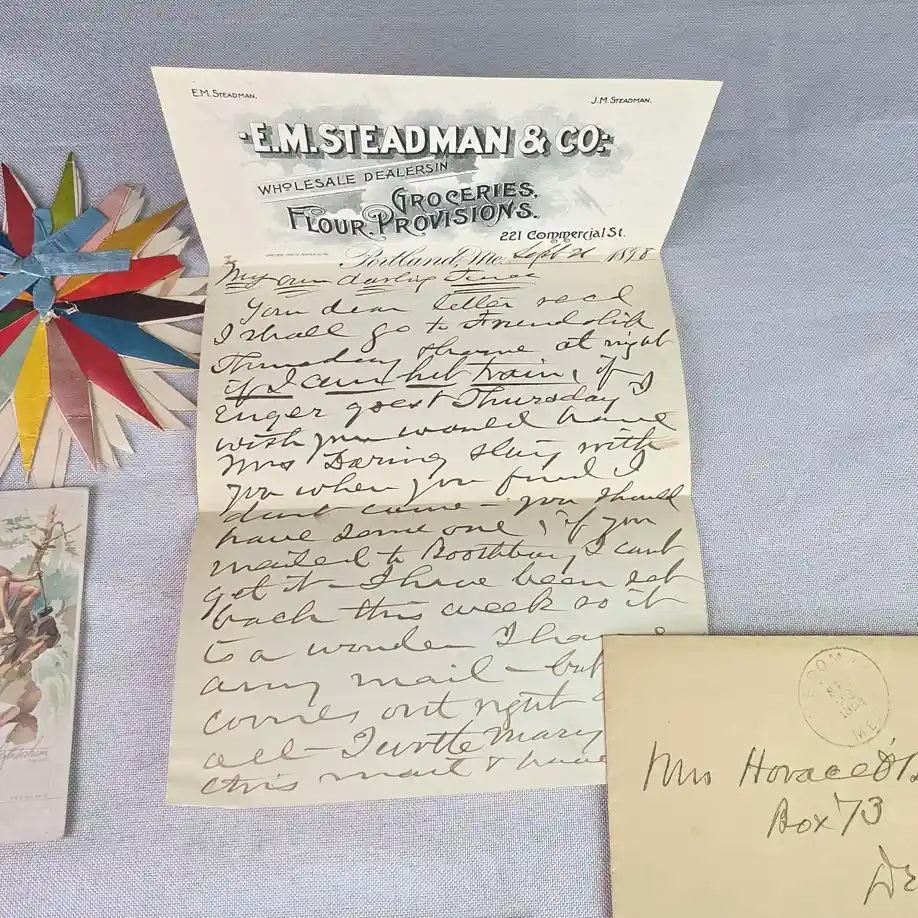 E.M. STEADMAN.
J.M. STEADMAN.
E.M. STEADMAN & CO.
WHOLESALE DEALERS IN
GROCERIES,
FLOUR, PROVISIONS.
221 Commercial St.
Portland, Me. Sept 1898
My own darling
Your dear letter recd
I shall go to Friendship
Thursday & home at night
if I can hit train, if
goes Thursday I
wish you would have
Mrs Daring stay with
you when you find I
dont come - you should
have some one, if you
mailed to Boothbay I cant
get it - I have been set
back this week so it
is a wonder I have
any mail - but
comes out right
all - I wrote Mary
this mail & have
ME
Mrs Horace
Box 73